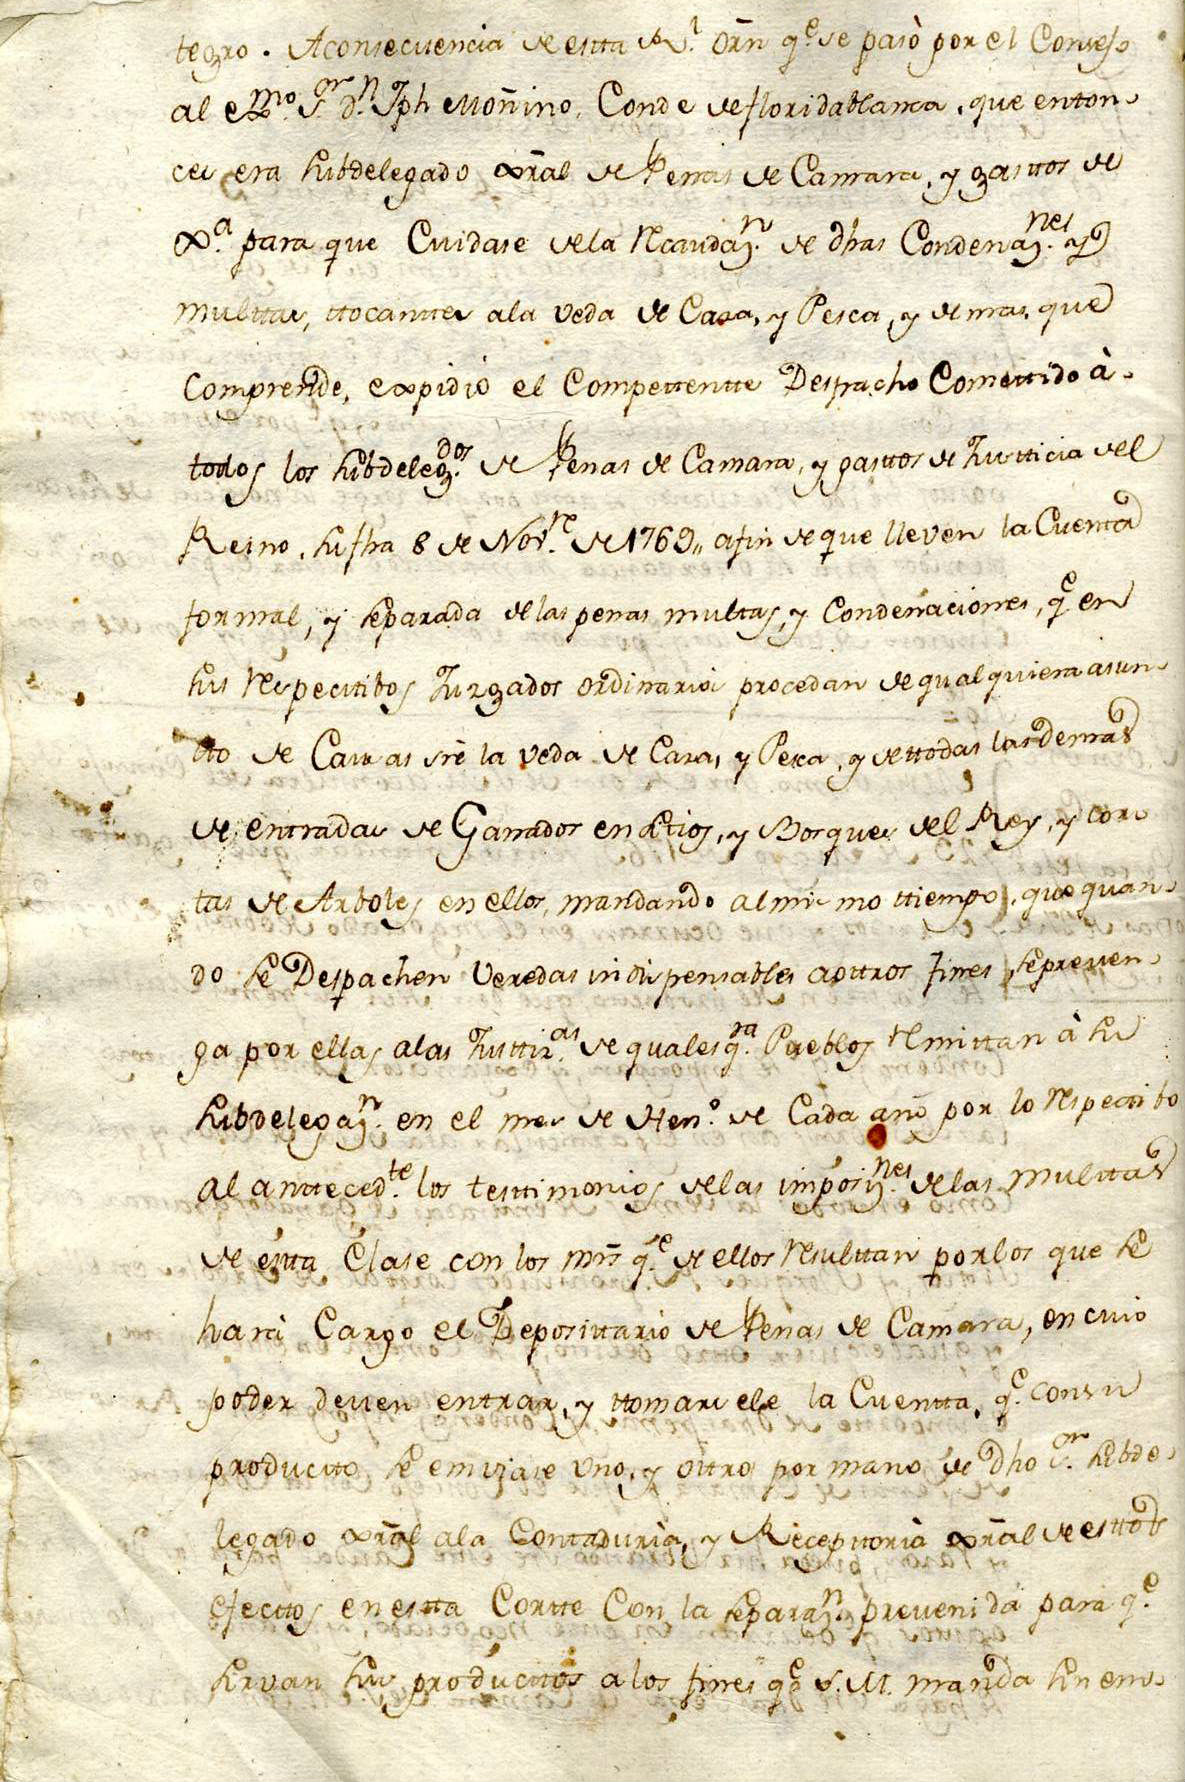 tegro. Aconsecuencia de estta Rl. orñ qe. se pasò por el Consejo
al exmo. Sor. dn. Jph Moñino, Conde de floridablanca, que enton-
ces era subdelegado xr̃al de Penas de Camara, y gasttos de
xa. para que Cuidase de la Recaudazn. de dhas Condenazns. y
multtas, ttocanttes ala veda de Caza, y Pesca, y demas que
Comprende, expidiò el Compettentte Despacho Comettido à
todos los subdelegdos. de Penas de Camara, y gasttos de Justticia del
Reino, su fha 8 de Novre. de 1769,, afin de que lleven la Cuentta
formal, y separada de las penas multas, y Condenaciones, qe. en
sus respecttibos Juzgados ordinarios procedan de qualquiera asun-
tto de Causas sr̃e la veda de Caza, y Pesca, y de ttodas las demas
de entradas de Ganados en sitios, y Bosques del Rey, y cor-
tas de Arboles en ellos, mandando al mismo ttiempo, que quan-
do se Despachen Veredas indispensables a ottros fines, se preven-
ga por ellas a las Justtizas. de qualesqra. Pueblos remittan à su
subdelegazn. en el mes de Heno. de Cada año por lo respecttibo
al anttecedte. los testtimonios de las imposiznes. de las Multtas
de estta Clase con los mrs̃ qe. de ellos resulttan por los que se
harà Cargo el Deposittario de Penas de Camara, en cuio
poder deven entrar, y ttomarsele la Cuentta, qe. con su
producto se embiase uno, y ottro por mano de Dho Sor. subde-
legado xr̃al ala Contaduria, y Recepttoria xr̃al de esttos
efecttos en estta Cortte Con la separazn. prevenida para qe.
sirvan sus producttos a los fines qe. S.M. manda sin emo-